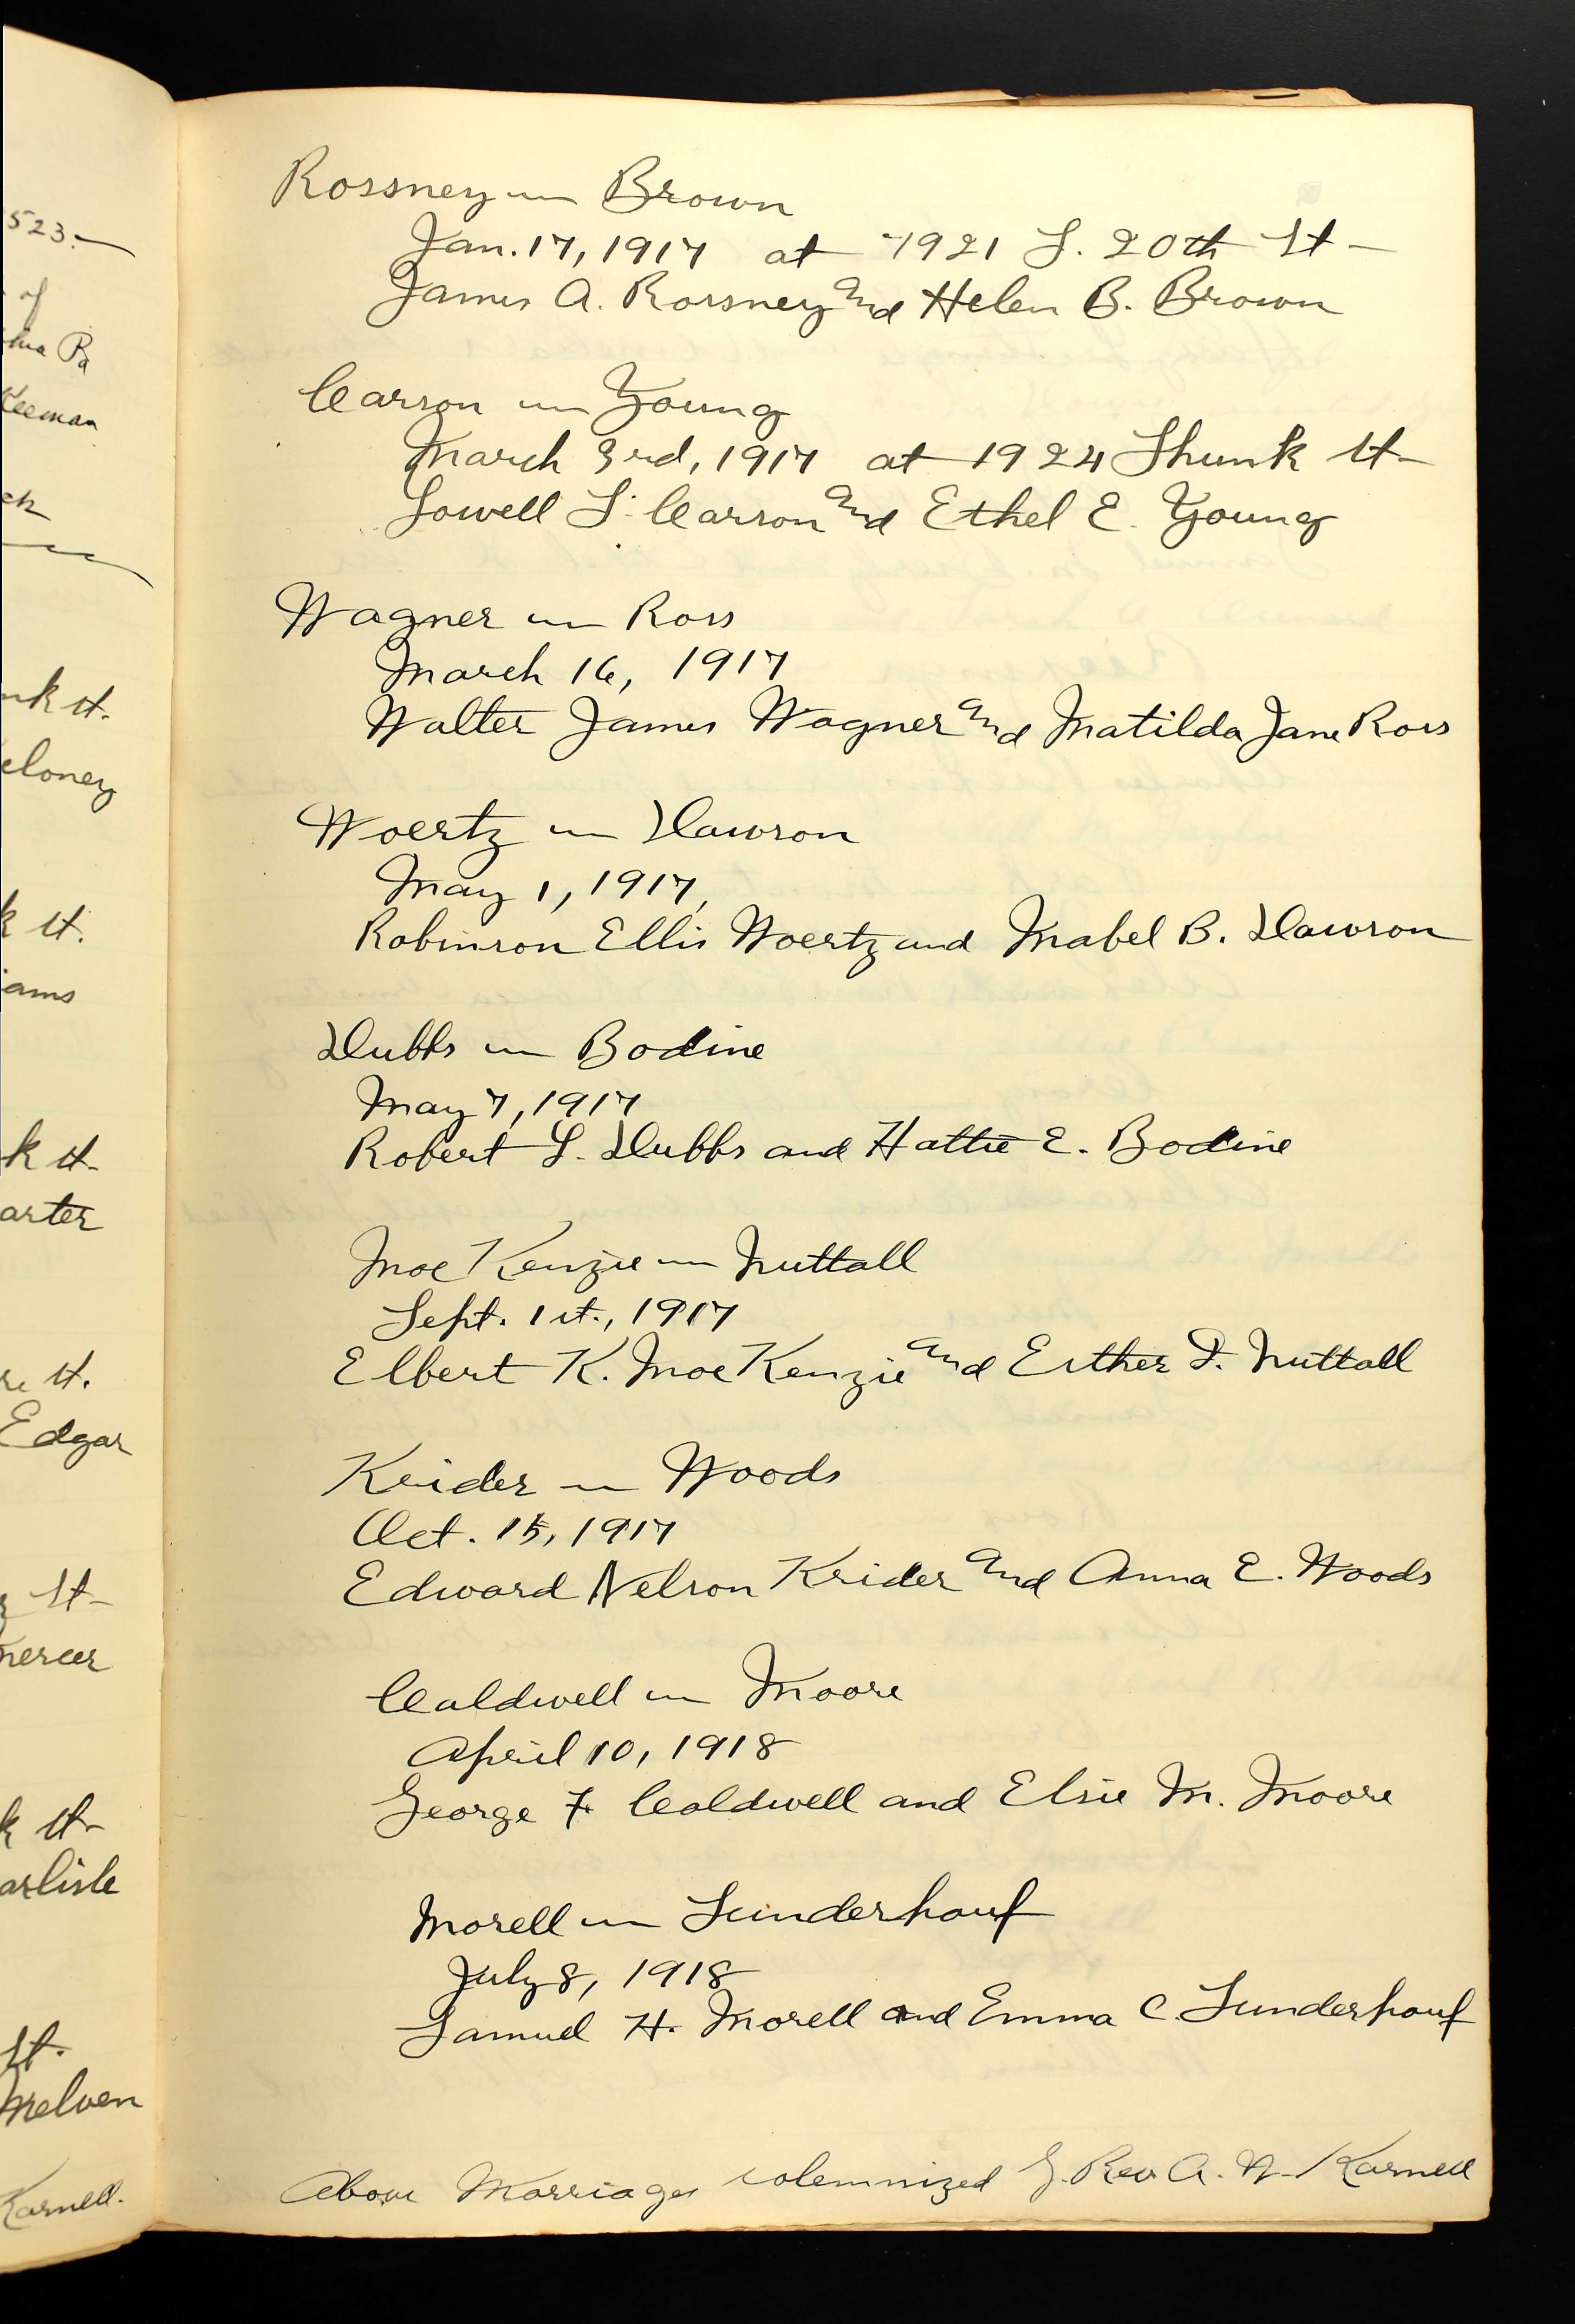 523.
of
Pa
Keeman
nk st.
eloney
k st.
iams
k st.
arter
re st.
Edgar
st.
mercer
k st.
arlisle
st.
Melven
Karnell.
Rossney — Brown
Jan. 17, 1917 at 1921 S. 20th St.
James A. Rossney and Helen B. Brown
Carson — Young
March 3rd, 1917 at 1924 Shunk St.
Lowell S. Carson and Ethel E. Young
Wagner — Ross
March 16, 1917
Walter James Wagner and Matilda Jane Ross
Woertz — Dawson
May 1, 1917,
Robinson Ellis Woertz and Mabel B. Dawson
Dubbs — Bodine
May 7, 1917
Robert L. Dubbs and Hattie E. Bodine
MacKenzie — Nuttall
Sept. 1st., 1917
Elbert K. MacKenzie and Esther D. Nuttall
Krider — Woods
Oct. 15, 1917
Edward Nelson Krider and Anna E. Woods
Caldwell — Moore
April 10, 1918
George F. Caldwell and Elsie M. Moore
Morell — Sunderhauf
July 8, 1918
Samuel H. Morell and Emma C. Sunderhauf
Above Marriages solemnized by Rev. A. W. Karnell